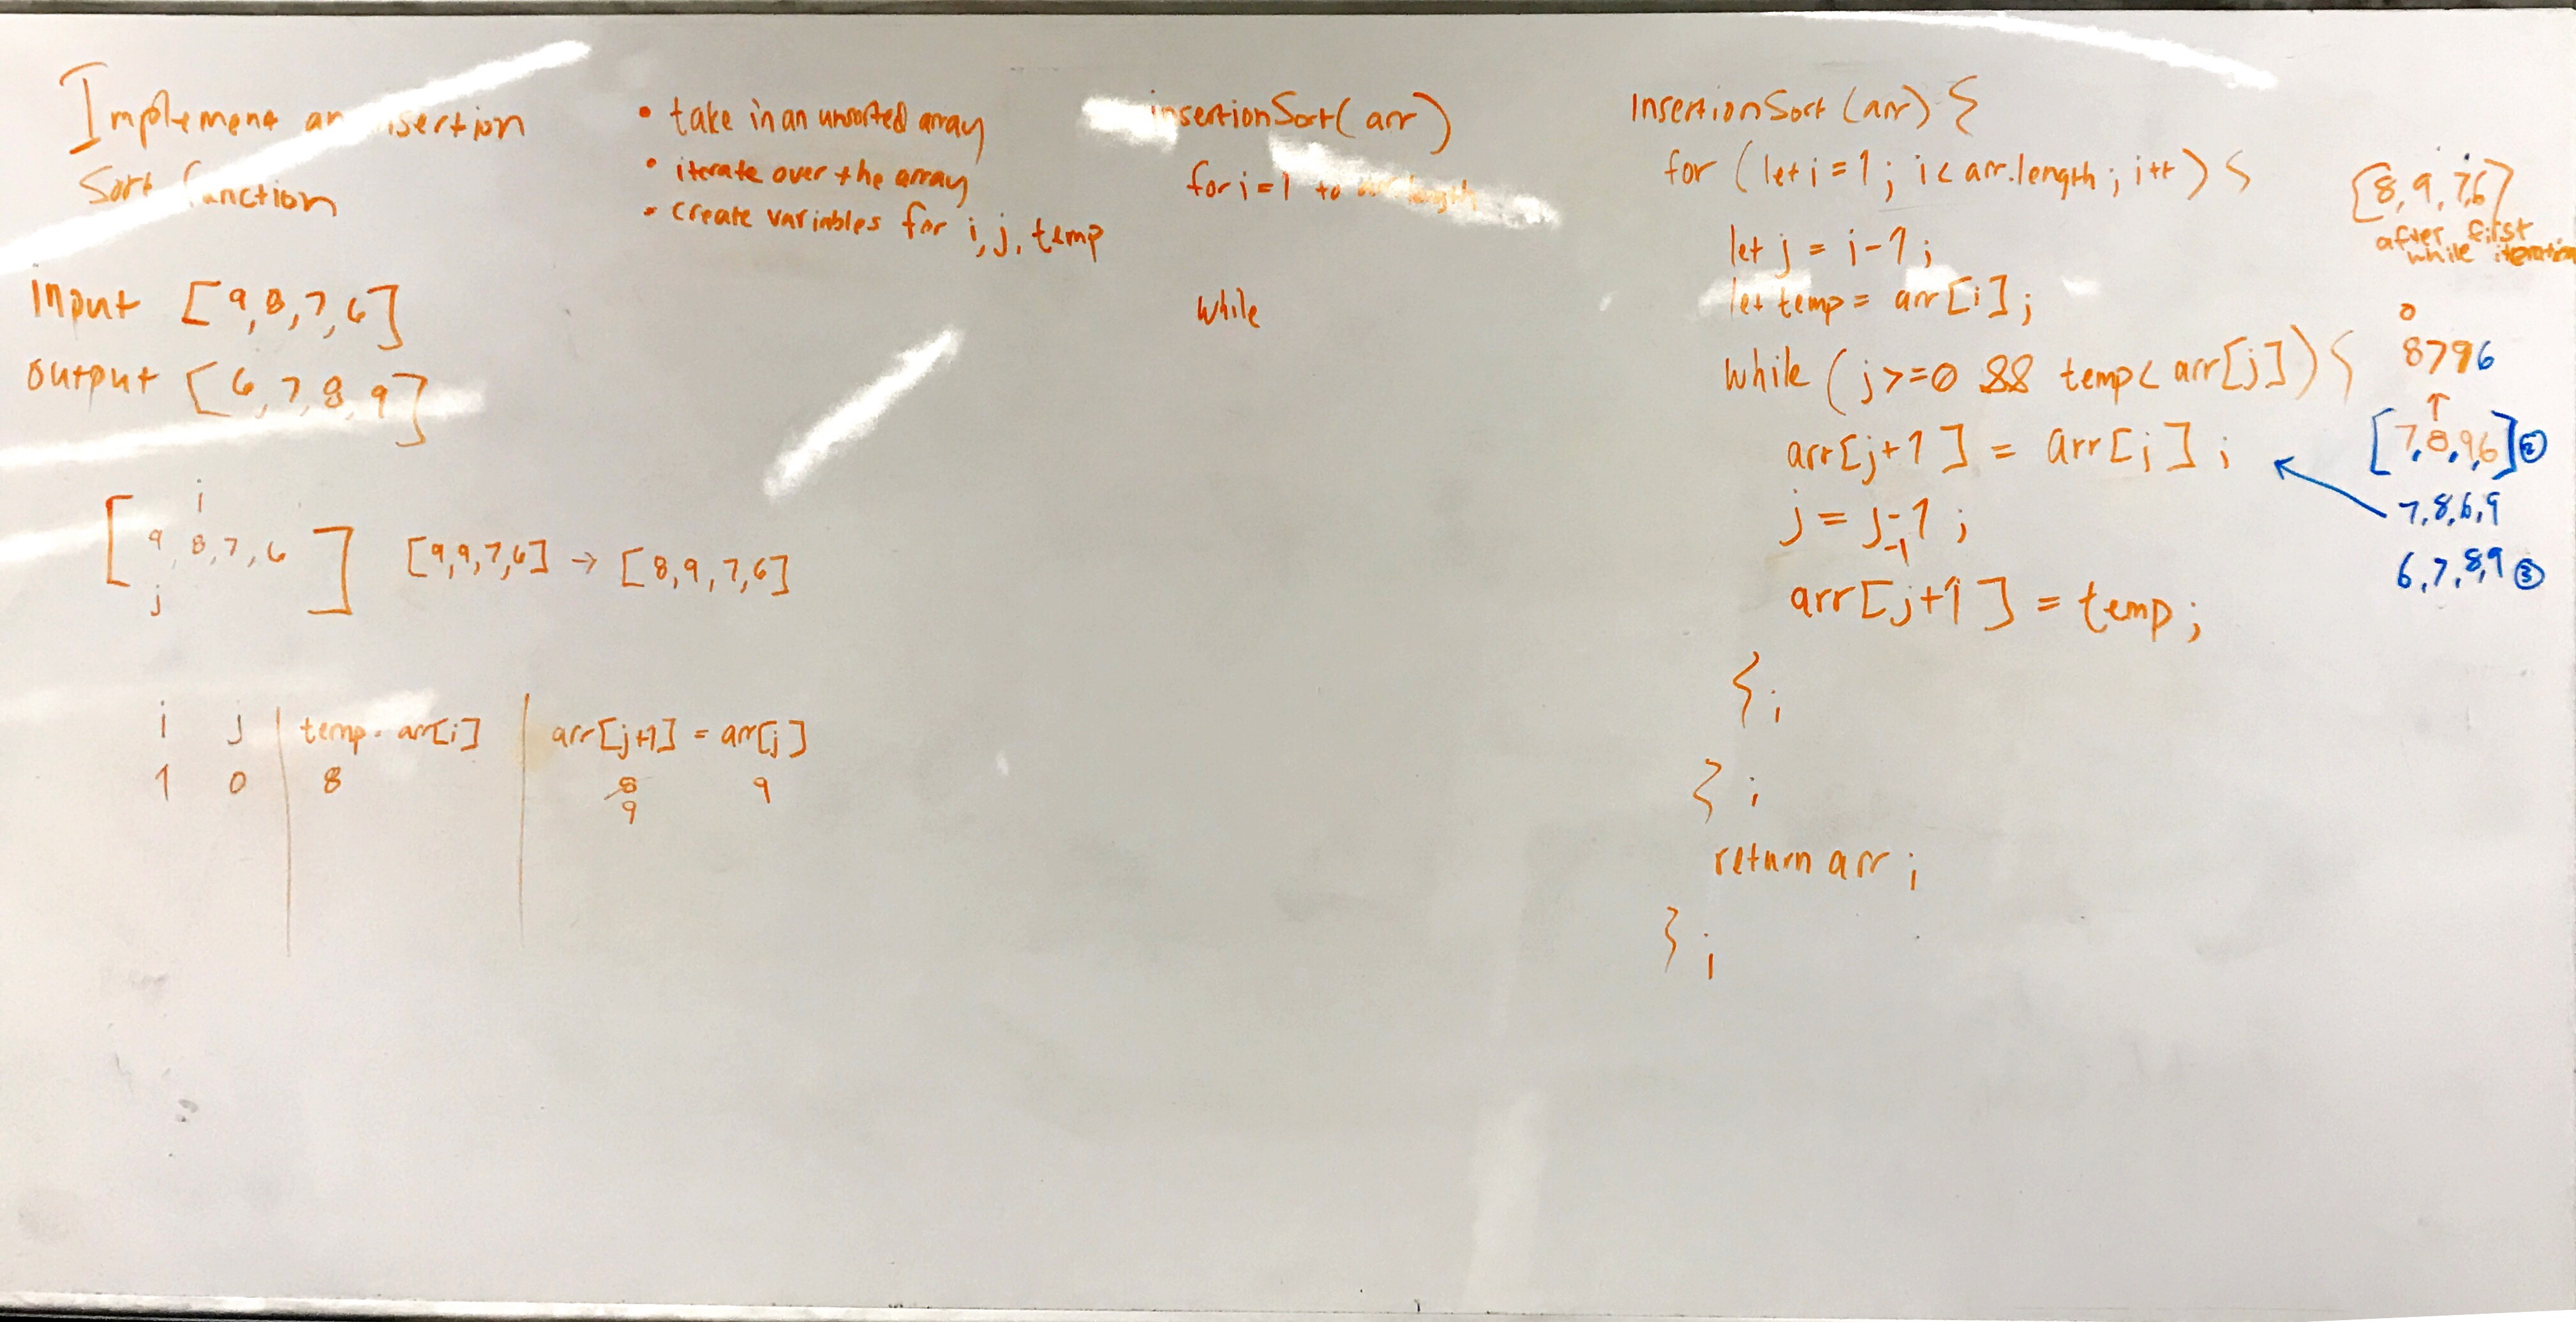 Implement an insertion
Sort function
Input [9,8,7,6]
output [6,7,8,9]
i
[9,8,7,6]
j
[9,9,7,6] → [8,9,7,6]
i j temp = arr[i] arr[j+1] = arr[j]
1 0 8 8 9
9
• take in an unsorted array
• iterate over the array
• create variables for i, j, temp
insertionSort(arr)
for i = 1 to arr.length
while
InsertionSort (arr) {
for (let i = 1; i < arr.length; i++) {
let j = i-1;
let temp = arr[i];
while (j >= 0 && temp < arr[j]) {
arr[j+1] = arr[j];
j = j-1;
-1
arr[j+1] = temp;
};
};
return arr;
};
[8,9,7,6]
after first
while iteration
0
8796
↑
[7,8,9,6] ②
7,8,6,9
6,7,8,9 ③